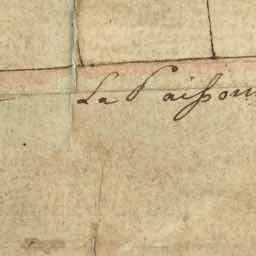 La Paisson